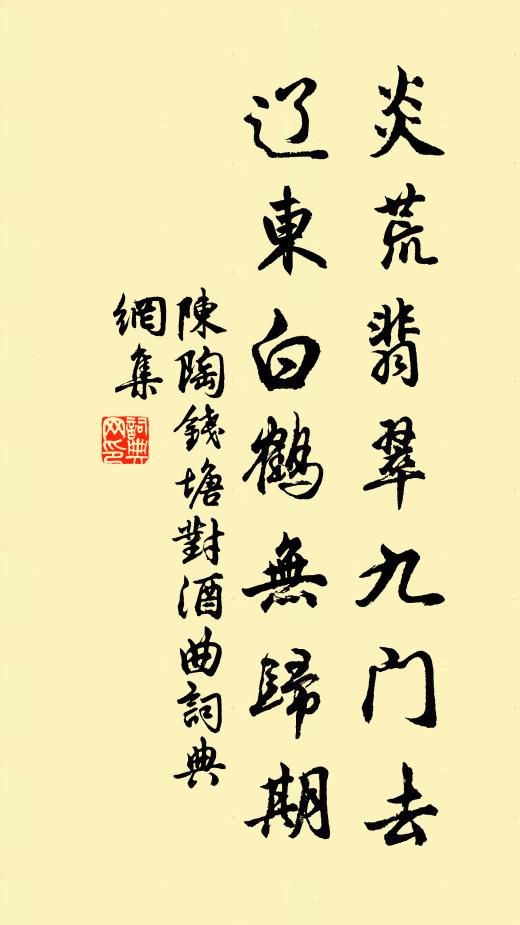 炎荒翡翠九门去
辽東白鶴無歸期
陳陶錢塘對酒曲詞典
網集
詞典
网印